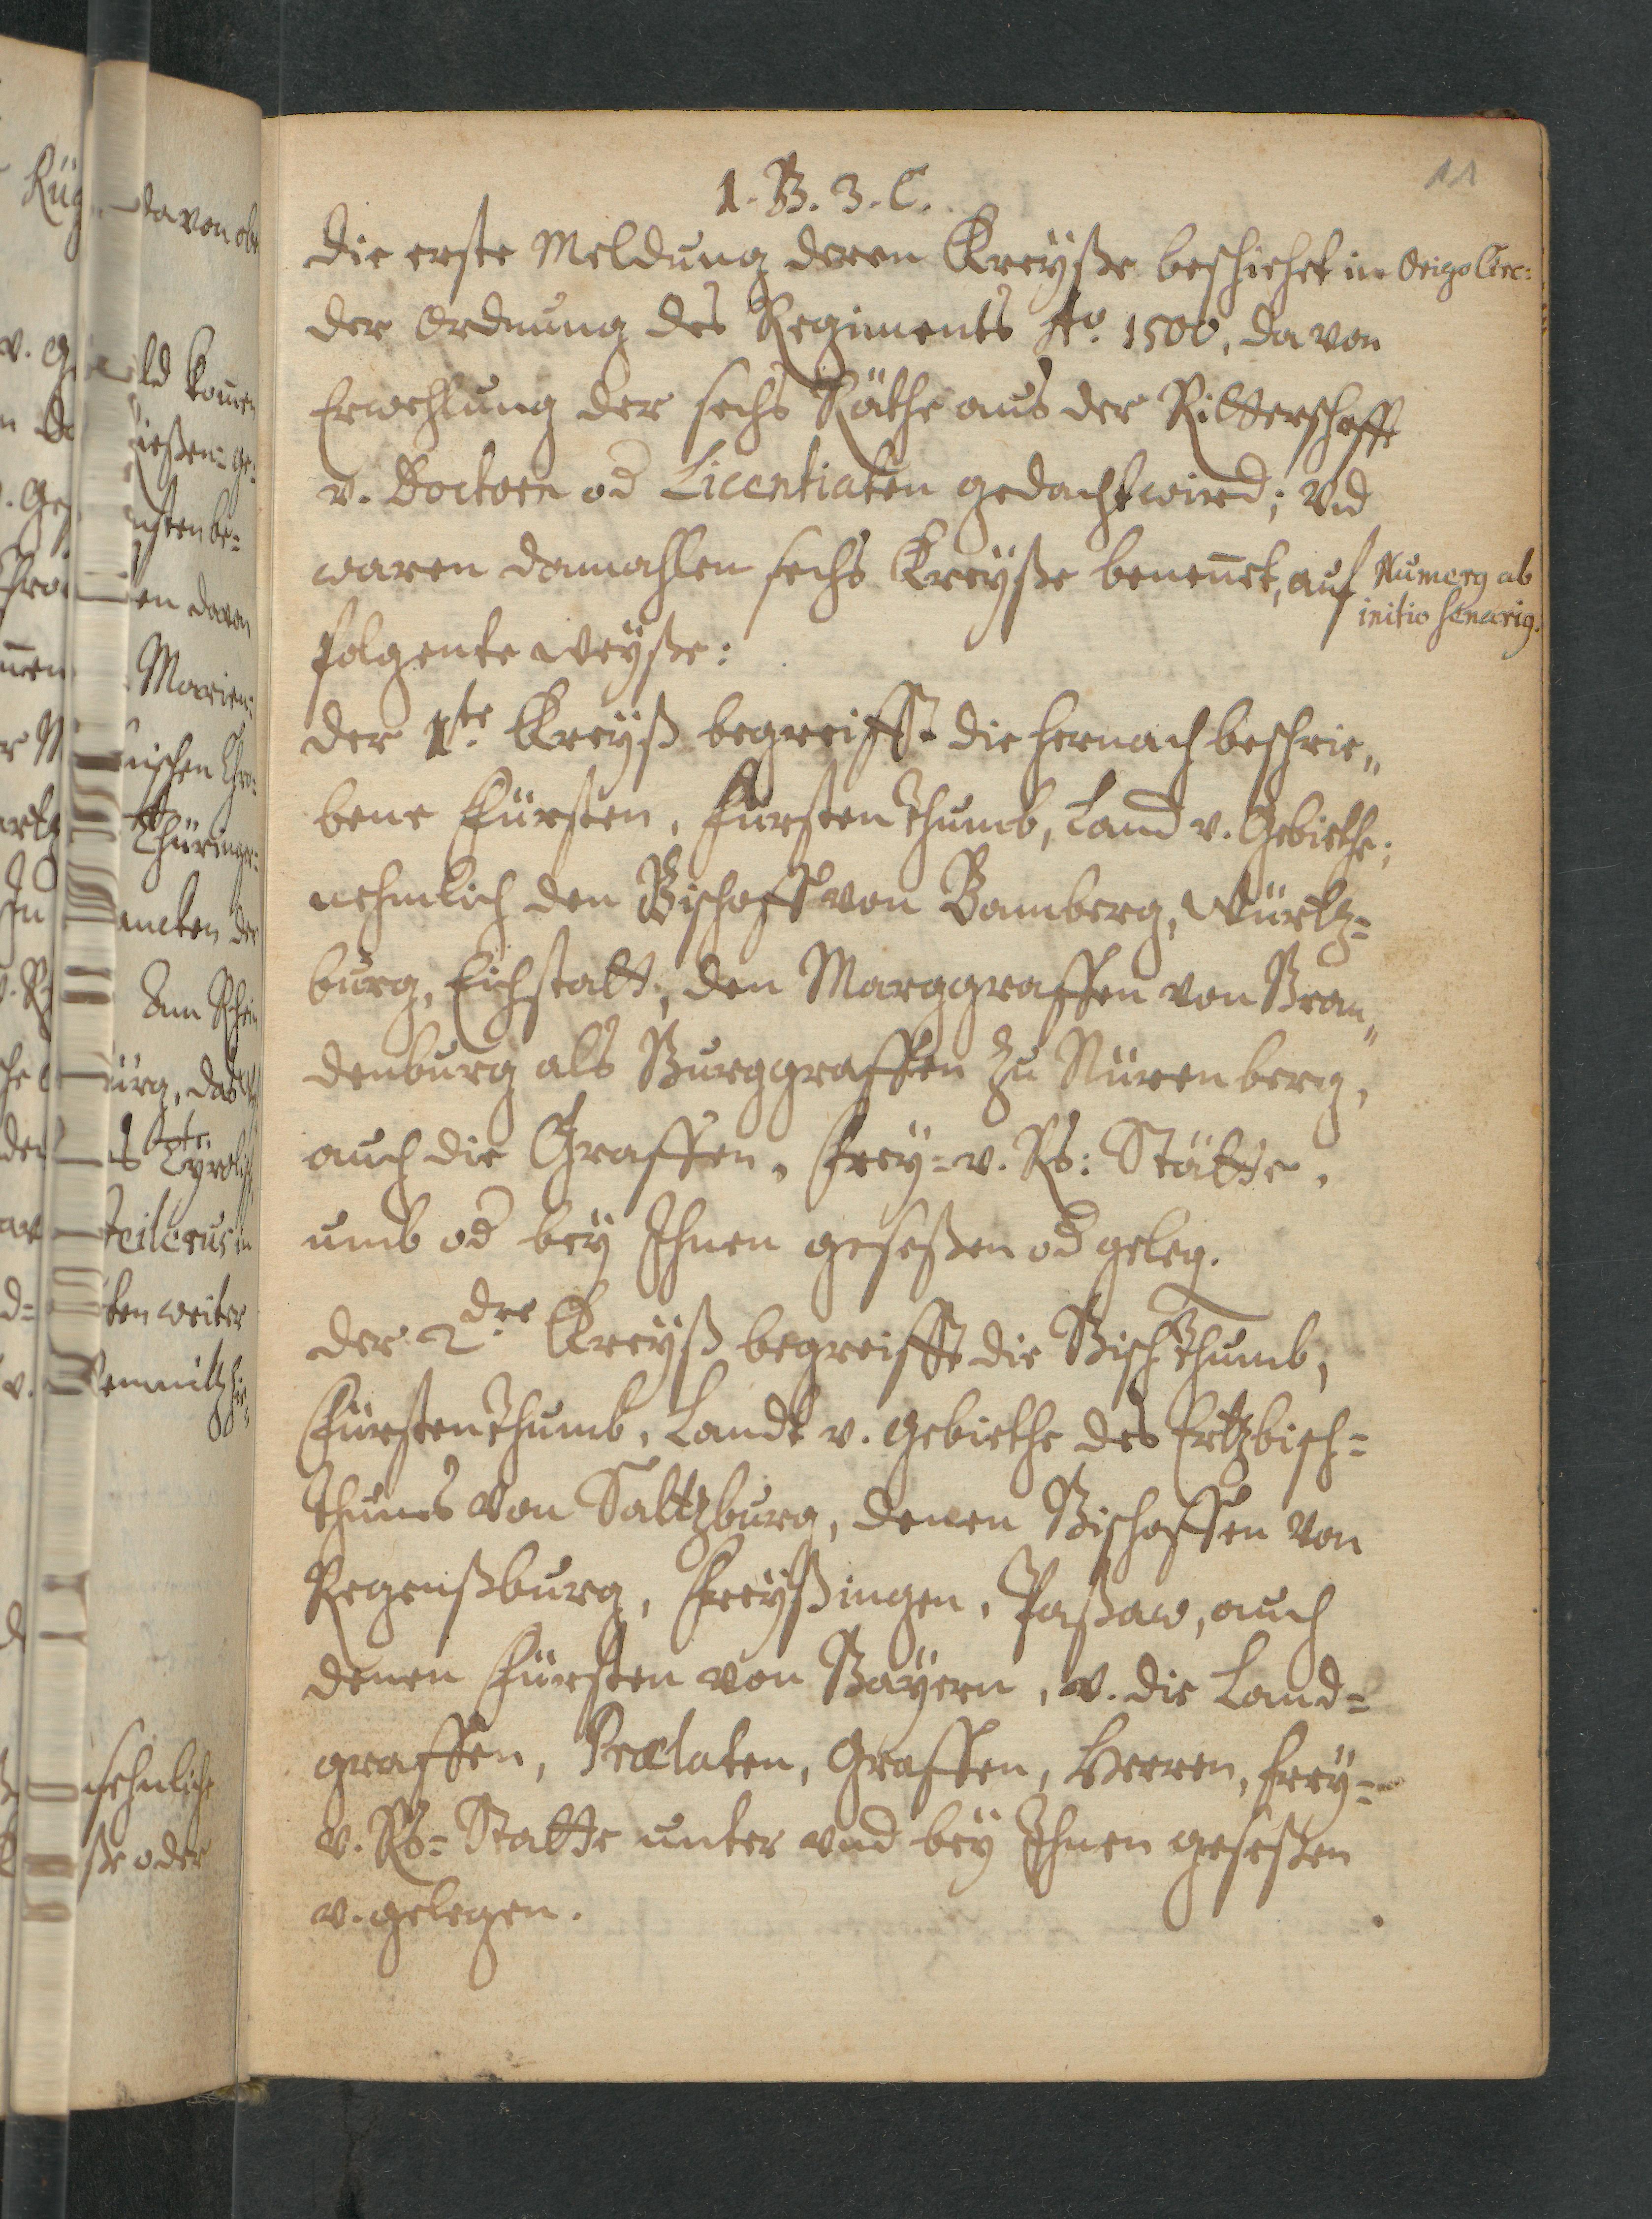 11
1. B. 3. C.
die erste Meldung deren Kreyße beschiehet in
Origo Circ:
der Ordnung des Regiments Ao. 1500, da von
Erwehlung der sechs Räthe aus der Ritterschafft
v. Doctorn od Licentiaten gedacht wird; und
waren damahlen sechs Kreyße beneñet, auf
Numerg ab
initio senarig.
folgente weyße:
der 1te Kreyß begreifft die hernach beschrie„
bene Fürsten, Fürstenthumb, Land v. Gebiethe,
nehmlich den Bischoff von Bamberg, Würtz=
burg, Eichstatt, den Marggraffen von Bran„
denburg als Burggraffen zu Nürenberg,
auch die Graffen, frey= v. Rs: Stätte,
umb od bey Ihnen geseßen od geleg.
der 2dre Kreyß begreifft die Bischthumb,
Fürstenthumb, Landt v. gebiethe des Ertzbisch=
thums von Saltzburg, denen Bischoffen von
Regenßburg, Freyßingen, Paßaw, auch
denen Fürsten von Bayern, v. die Land=
graffen, Prælaten, Graffen, Herren, frey=
v. Rs= Stätte unter und bey Ihnen geseßen
v. gelegen.